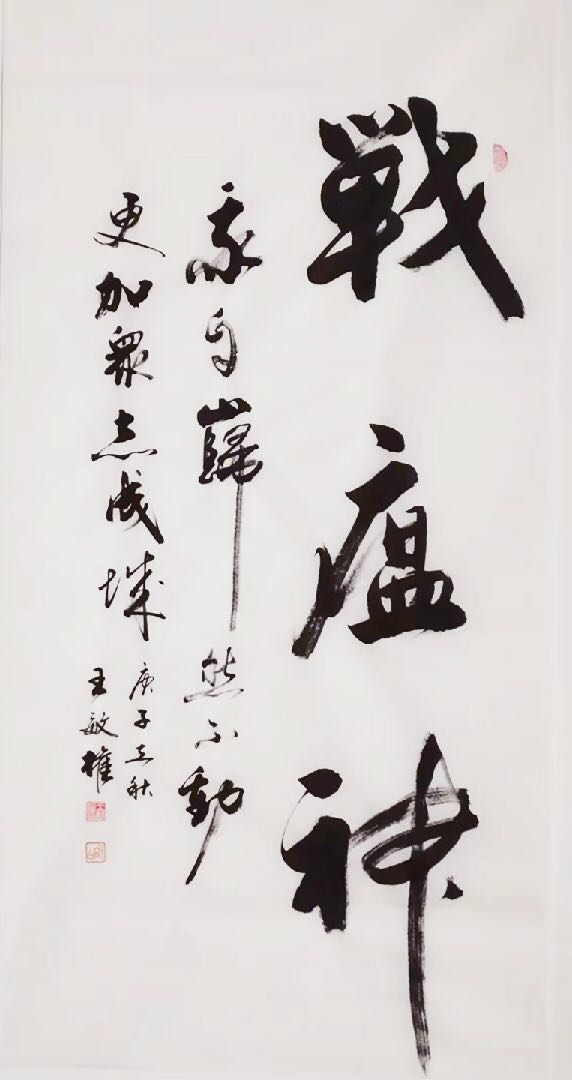 戦瘟神
我自巋然不動
更加眾志成城
庚子立秋
王敏權